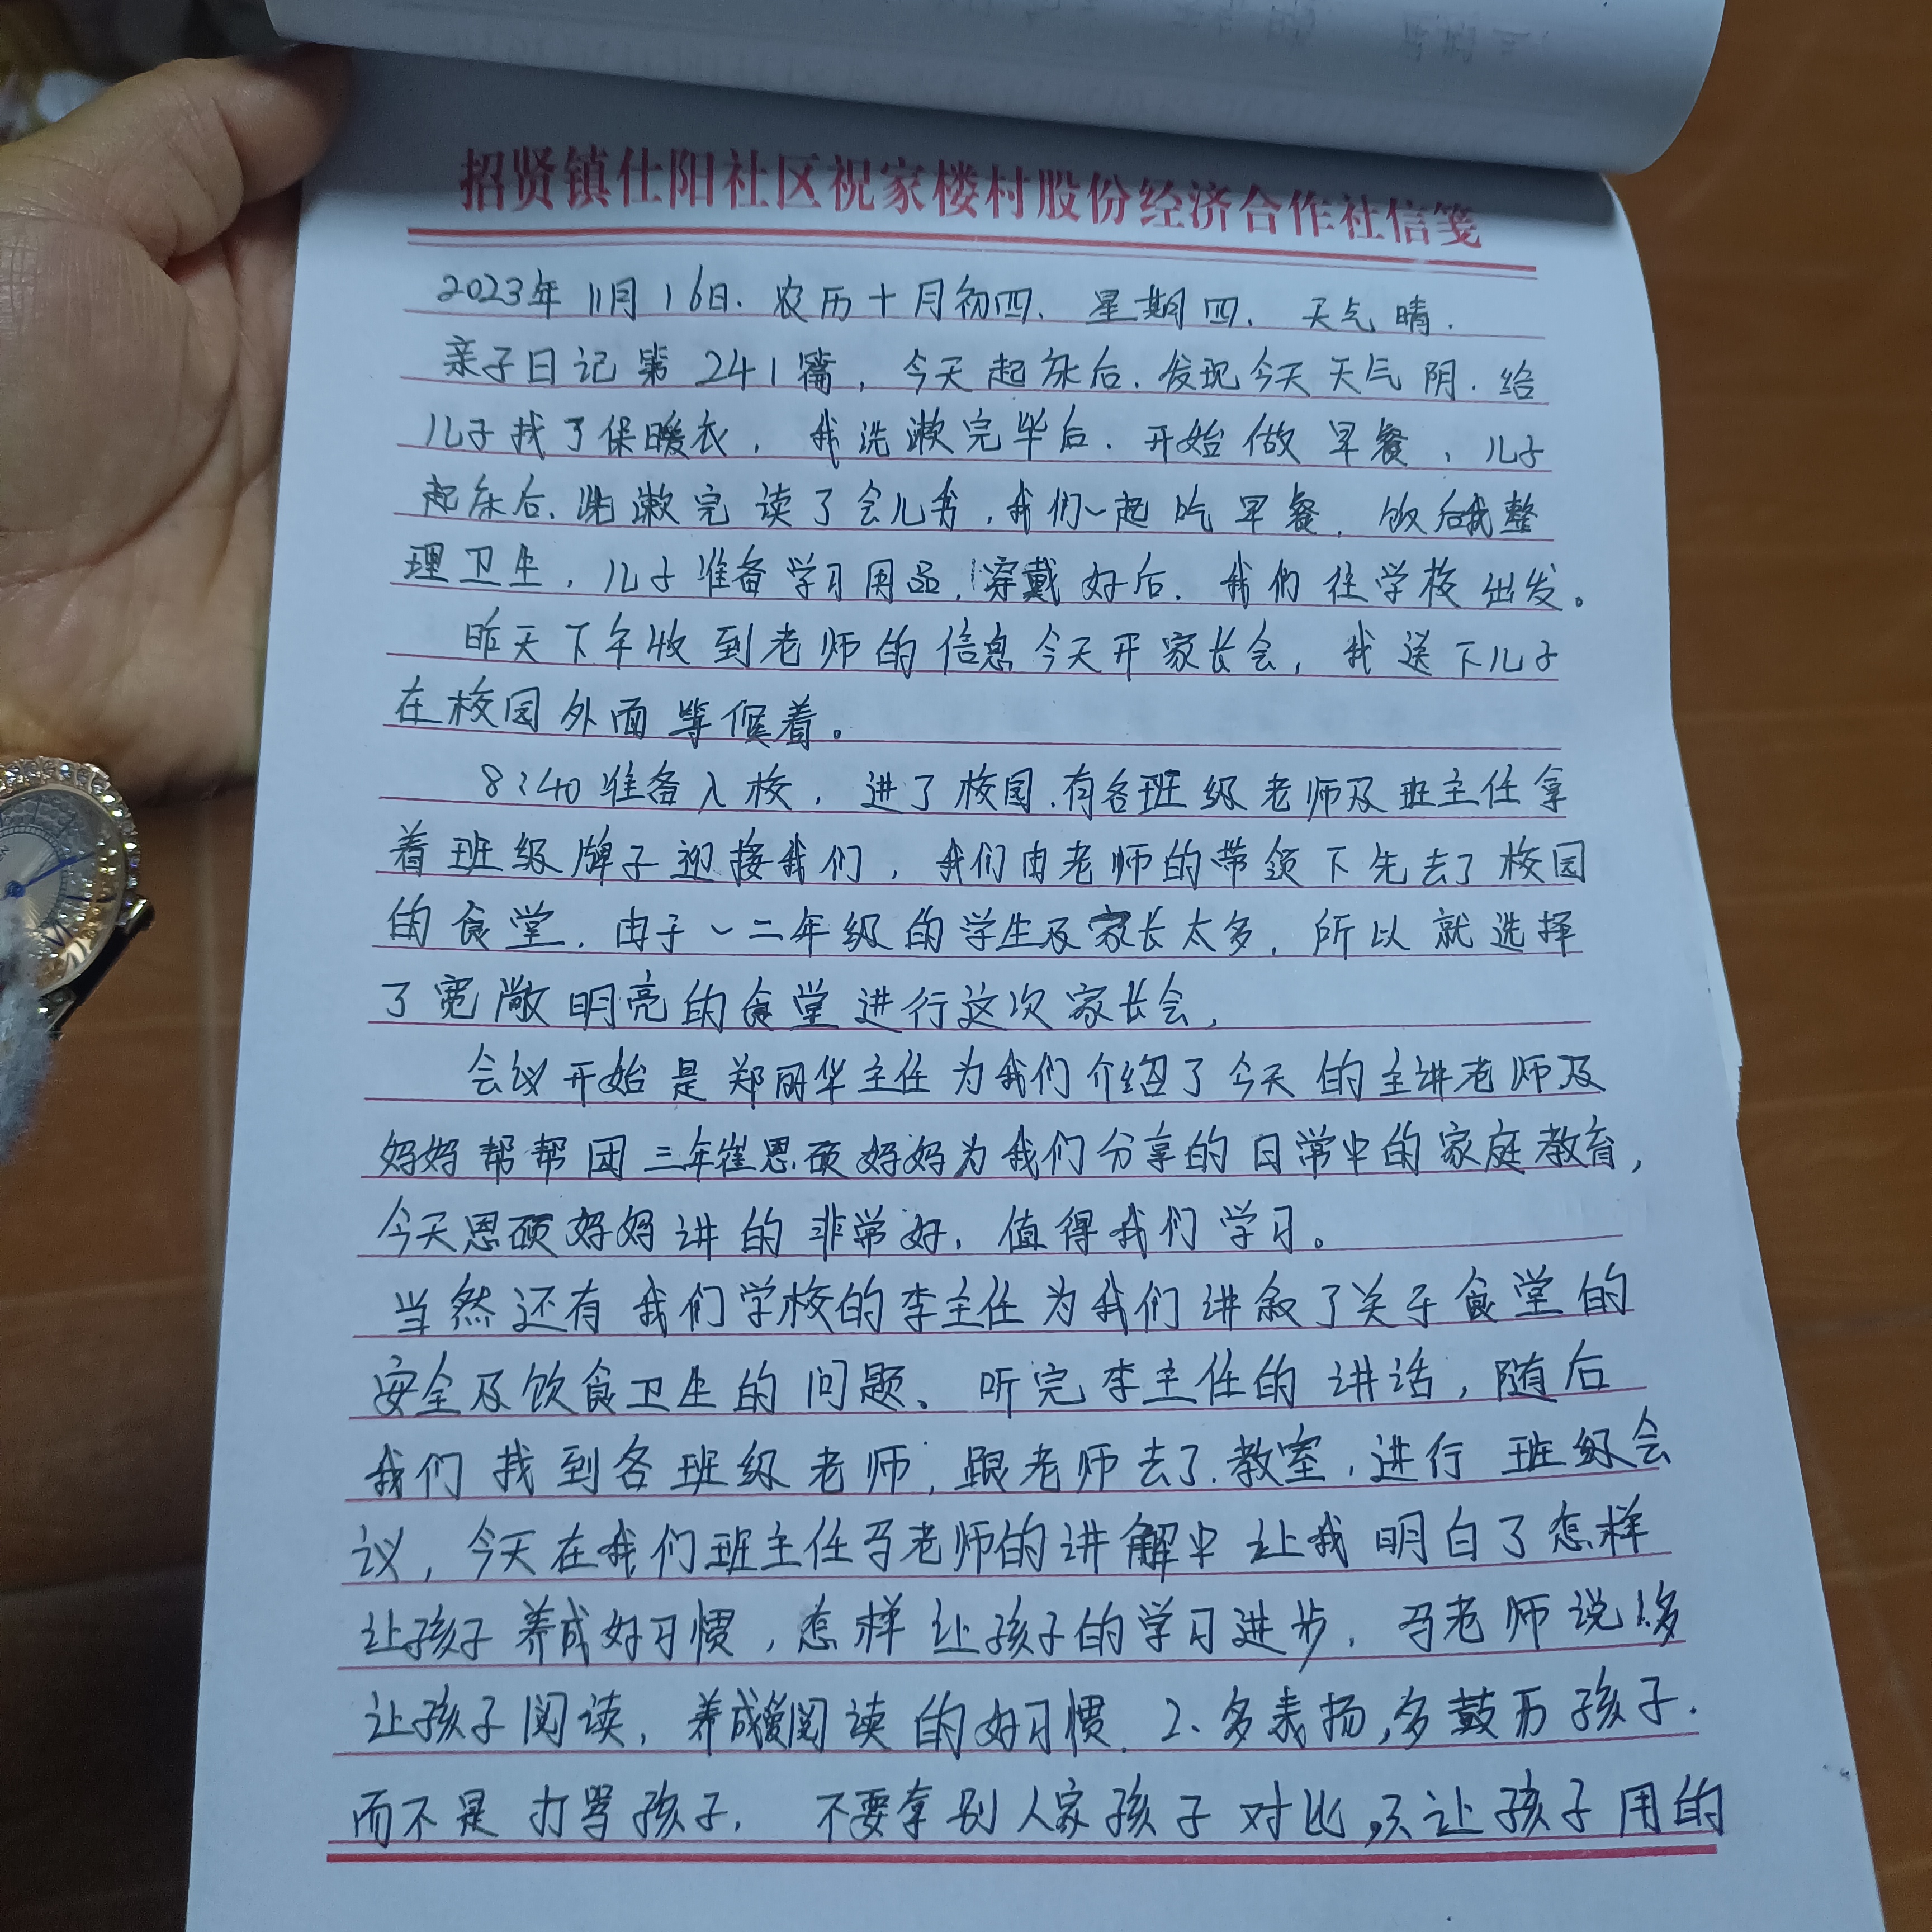 招贤镇仕阳社区祝家楼村股份经济合作社信笺
2023年11月16日.农历十月初四.星期四.天气晴.
亲子日记第241篇,今天起床后.发现今天天气阴.给
儿子找了保暖衣,我洗漱完毕后.开始做早餐,儿子
起床后.洗漱完读了会儿书,我们一起吃早餐.饭后我整
理卫生,儿子准备学习用品.穿戴好后.我们往学校出发。
昨天下午收到老师的信息今天开家长会,我送下儿子
在校园外面等候着。
8:40准备入校,进了校园.有各班级老师及班主任拿
着班级牌子迎接我们,我们由老师的带领下先去了校园
的食堂.由于一二年级的学生及家长太多,所以就选择
了宽敞明亮的食堂进行这次家长会,
会议开始是郑丽华主任为我们介绍了今天的主讲老师及
妈妈帮帮团三年崔恩硕妈妈为我们分享的日常中的家庭教育,
今天恩硕妈妈讲的非常好,值得我们学习。
当然还有我们学校的李主任为我们讲叙了关于食堂的
安全及饮食卫生的问题、听完李主任的讲话,随后
我们找到各班级老师,跟老师去了.教室,进行班级会
议,今天在我们班主任马老师的讲解中让我明白了怎样
让孩子养成好习惯,怎样让孩子的学习进步,马老师说1.多
让孩子阅读,养成爱阅读的好习惯.2、多表扬,多鼓励孩子.
而不是打骂孩子,不要拿别人家孩子对比,只让孩子用的